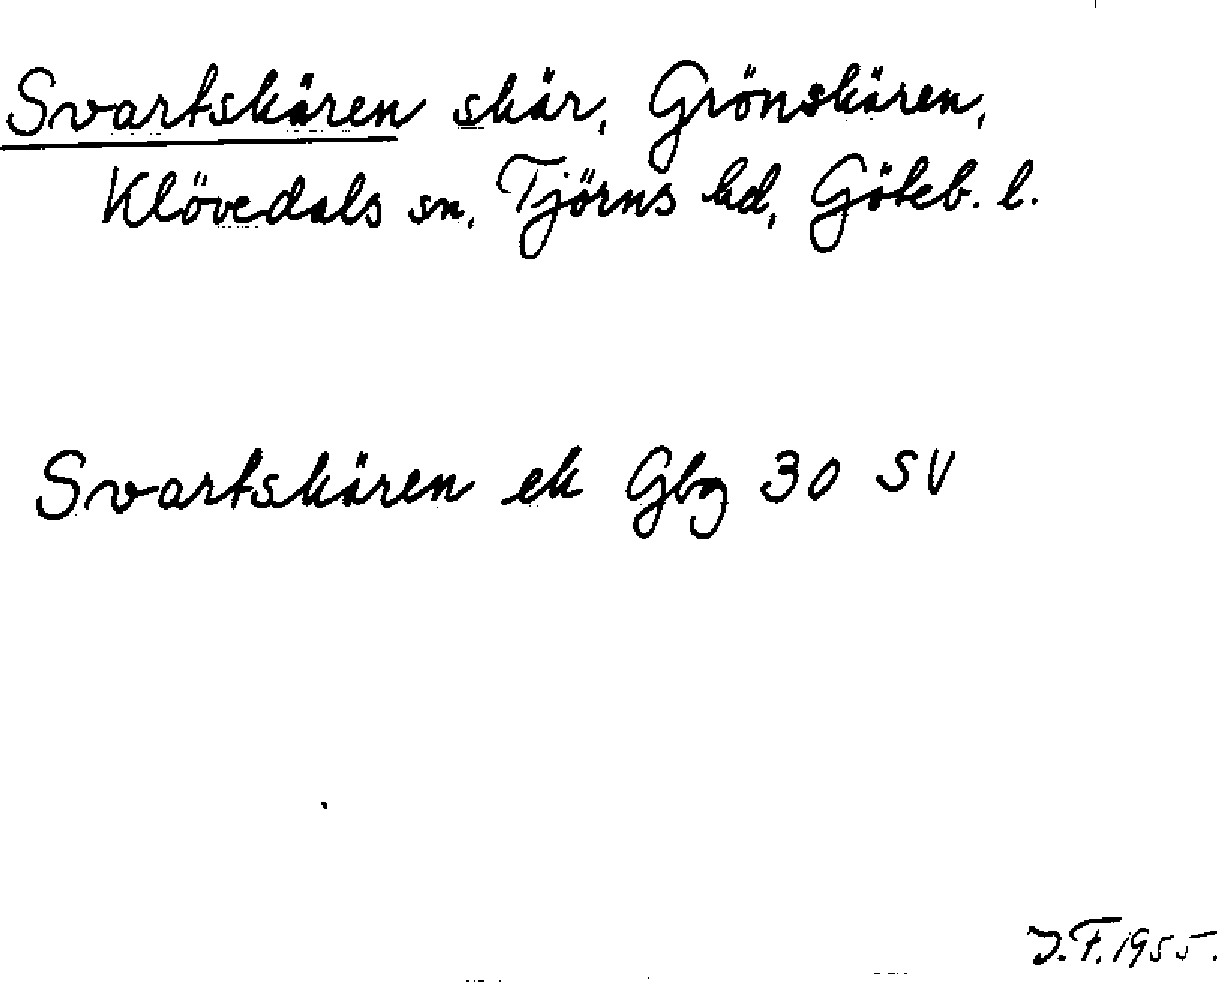 Svartskären skär, Grönskären,
Klövedals sn, Tjörns hd, Göteb. l.
Svartskären ek Gbg 30 SV
J.F. 1955.